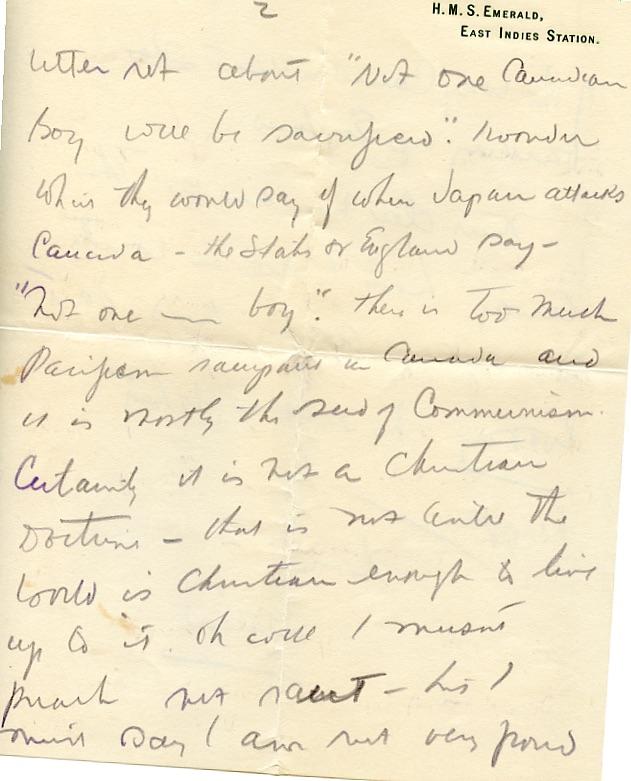 2
H. M. S. EMERALD,
EAST INDIES STATION.
utter rot about "Not one Canadian
boy will be sacrificed". I wonder
what they would say if when Japan attacks
Canada – the States or England say –
"Not one — boy". There is too much
Pacifism rampant in Canada and
it is mostly the seed of Communism.
Certainly it is not a Christian
Doctrine – that is not until the
world is Christian enough to live
up to it. Oh well I mustn't
preach nor rant – but I
must say I am not very proud